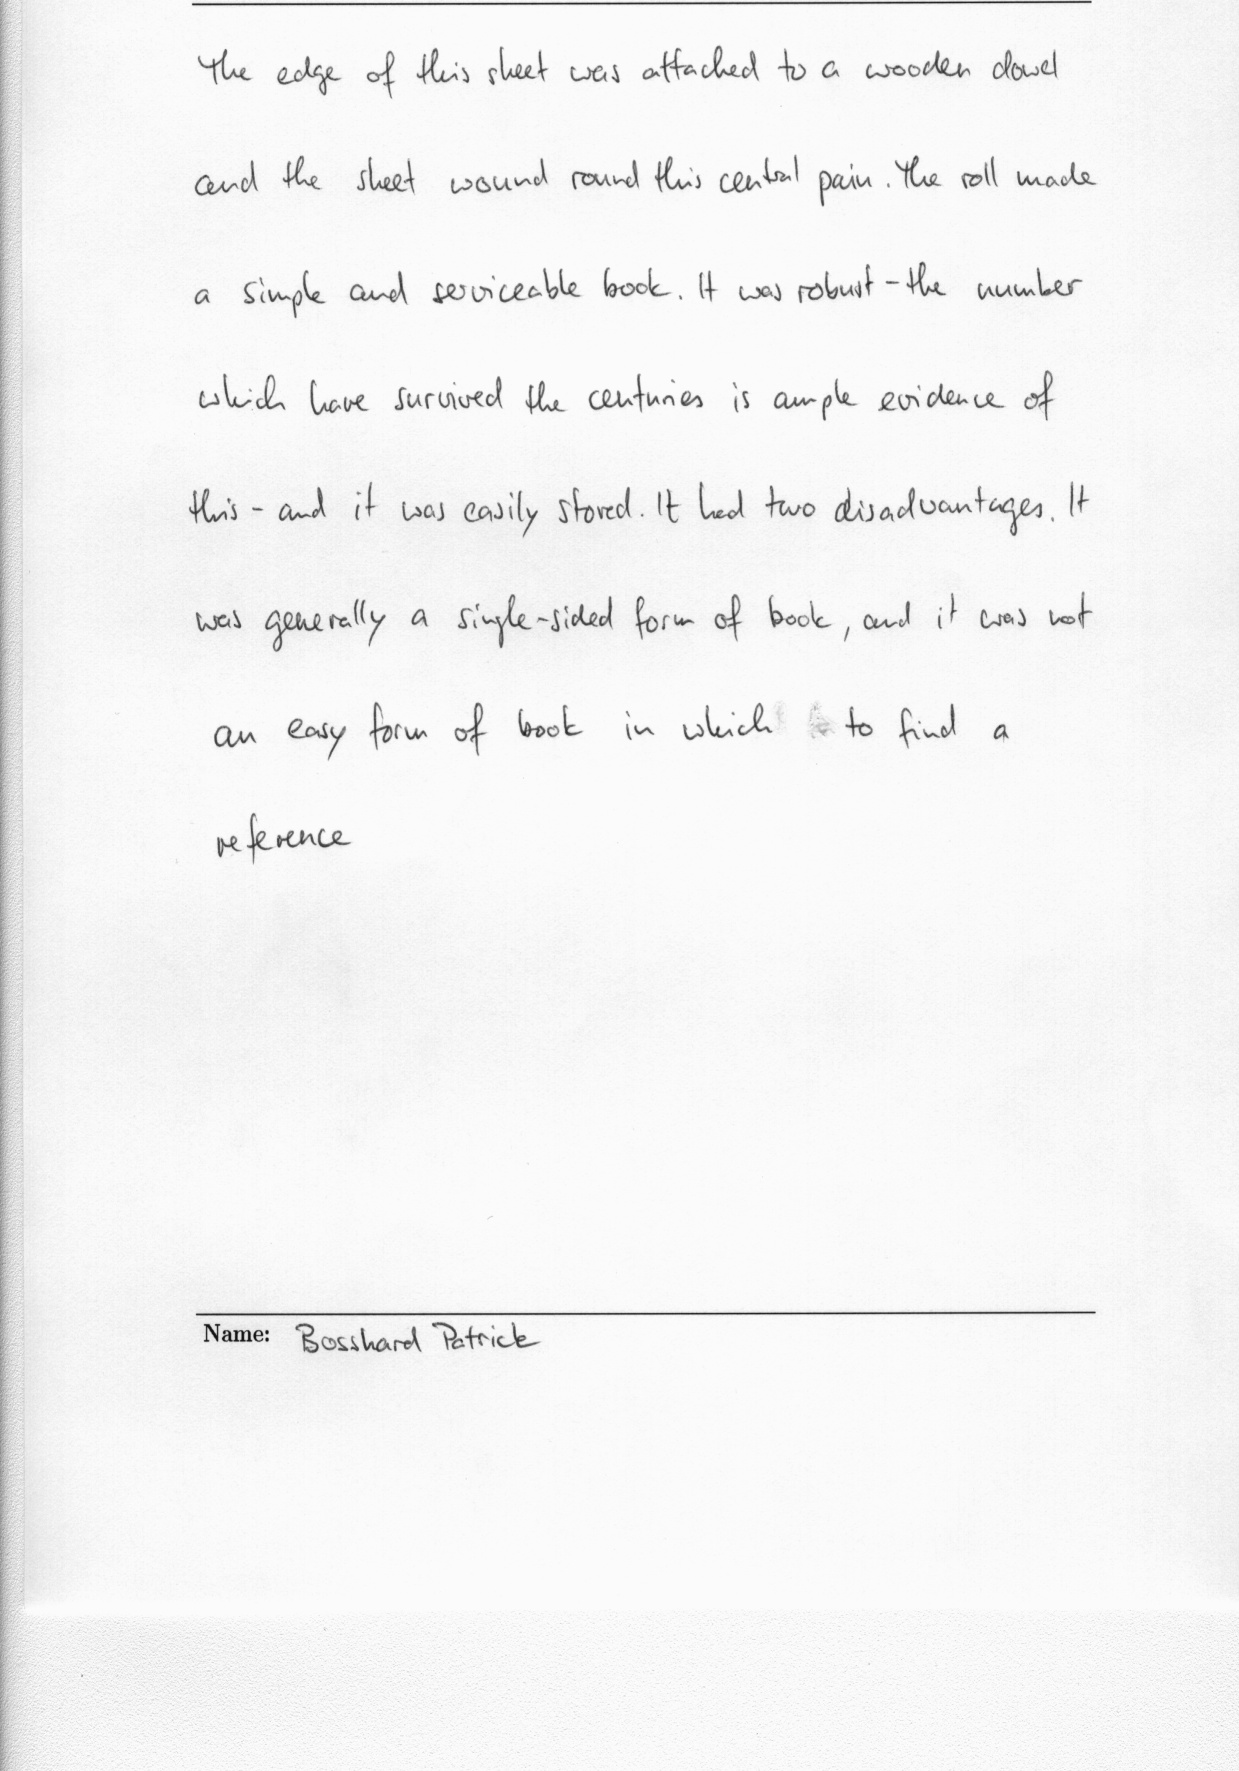 The edge of this sheet was attached to a wooden dowel
and the sheet wound round this central pain. The roll made
a simple and serviceable book. It was robust - the number
which have survived the centuries is ample evidence of
this - and it was easily stored. It had two disadvantages. It
was generally a single-sided form of book, and it was not
an easy form of book in which to find a
reference
Name: Bosshard Patrick